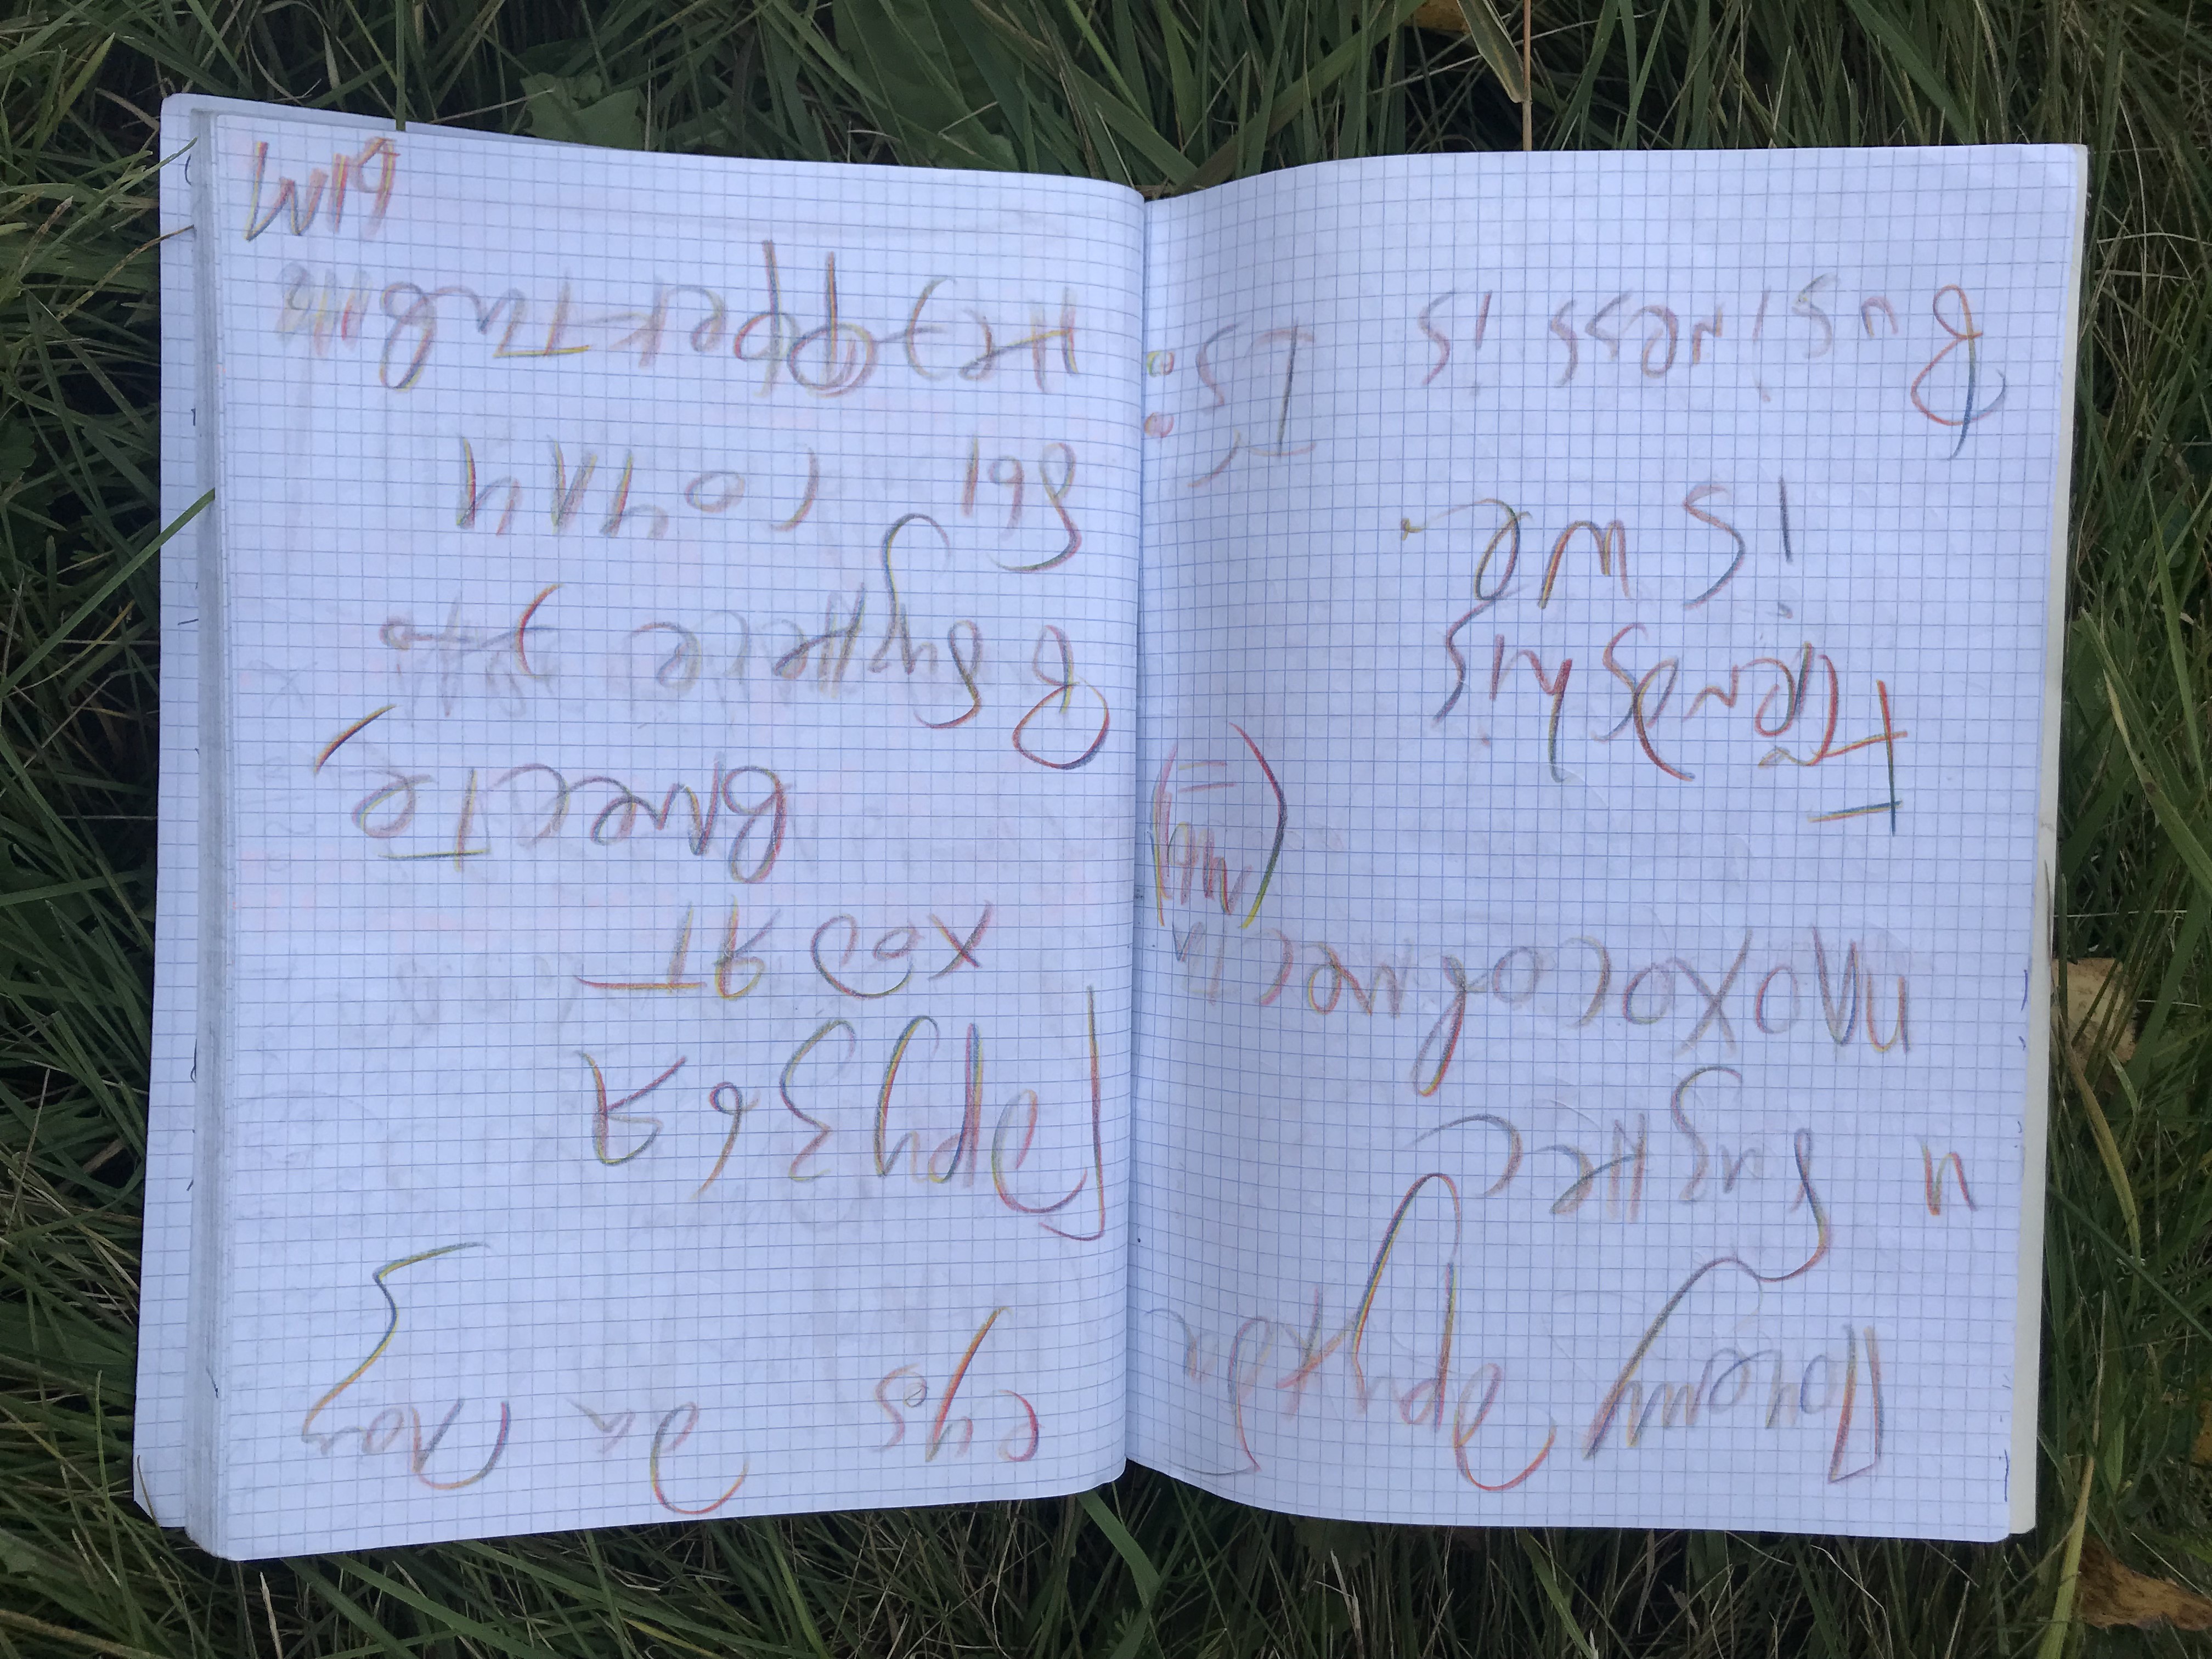 Почему дружба
и бизнес
плохосовмести
(мы)
Friendship
is we.
Business is I's:
eyes да глаз
Друзья
ходят
вместе,
В бизнесе это
бы сочли
неэффективн
ым